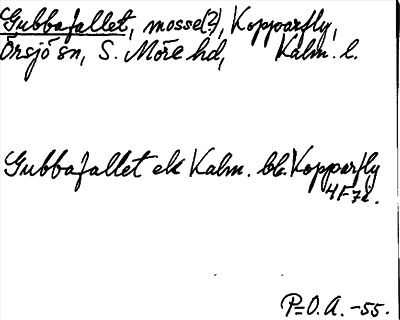 Gubbafallet, mosse(?), Kopparfly,
Örsjö sn, S. Möre hd, Kalm. l.
Gubbafallet ek Kalm. bl. Kopparfly
4F7i.
P=O. A. -55.